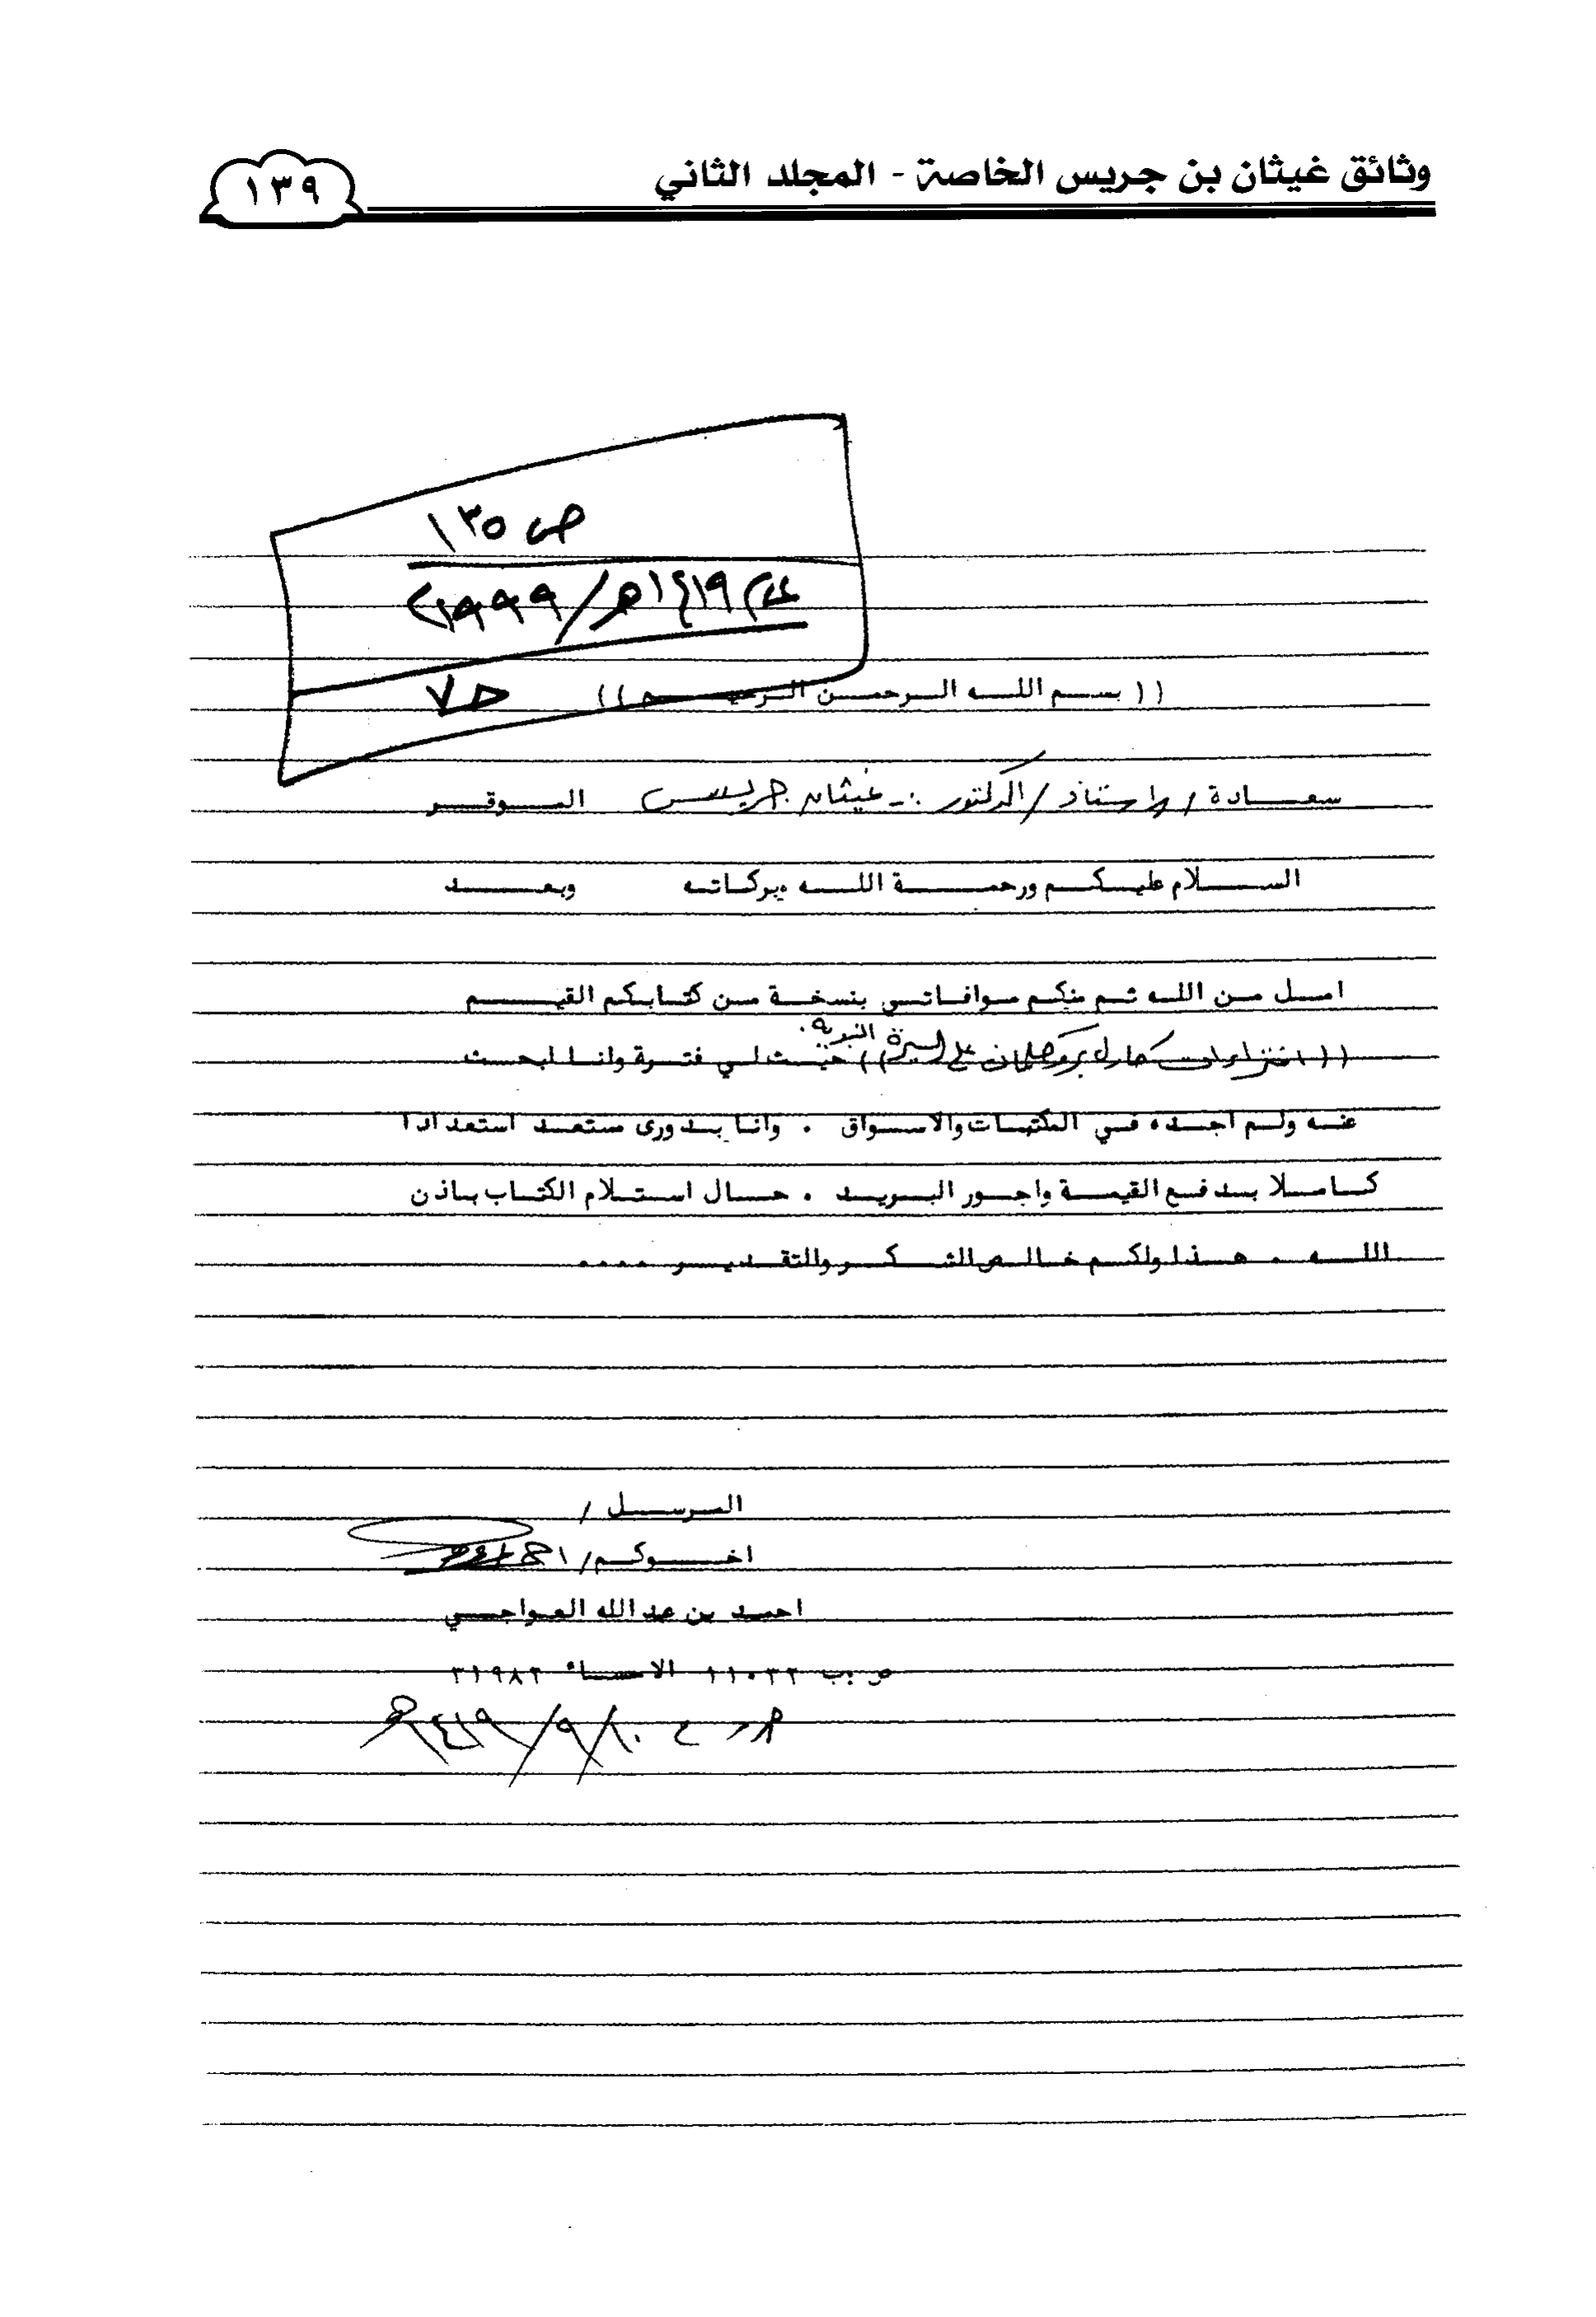 وثائق غيثان بن جريس الخاصة - المجلد الثاني
١٣٩
ص ١٣٥
١٤١٩هـ/١٩٩٩م
ح٧
(( بسم اللـه الرحمن الرحيم ))
سعادة / الاستاذ / الدكتور :- غيثان جريس الموقر
السلام عليكم ورحمة اللـه وبركاته وبعد
امل من اللـه ثم منكم موافاتي بنسخة من كتابكم القيم
(( افتراءات كارل بروكلمان على السيرة النبوية . )) حيث لي فترة وانا ابحث
عنه ولم اجده في المكتبات والاسواق . وانا بدورى مستعد استعدادا
كاملا بدفع القيمة واجور البريد . حال استلام الكتاب باذن
اللـه . هذا ولكم خالص الشكر والتقدير ....
المرسل /
اخوكم /
احمد بن عبدالله العواجي
ص.ب ١١٠٣٢ الاحساء ٣١٩٨٢
١٠/٩/١٤١٩هـ